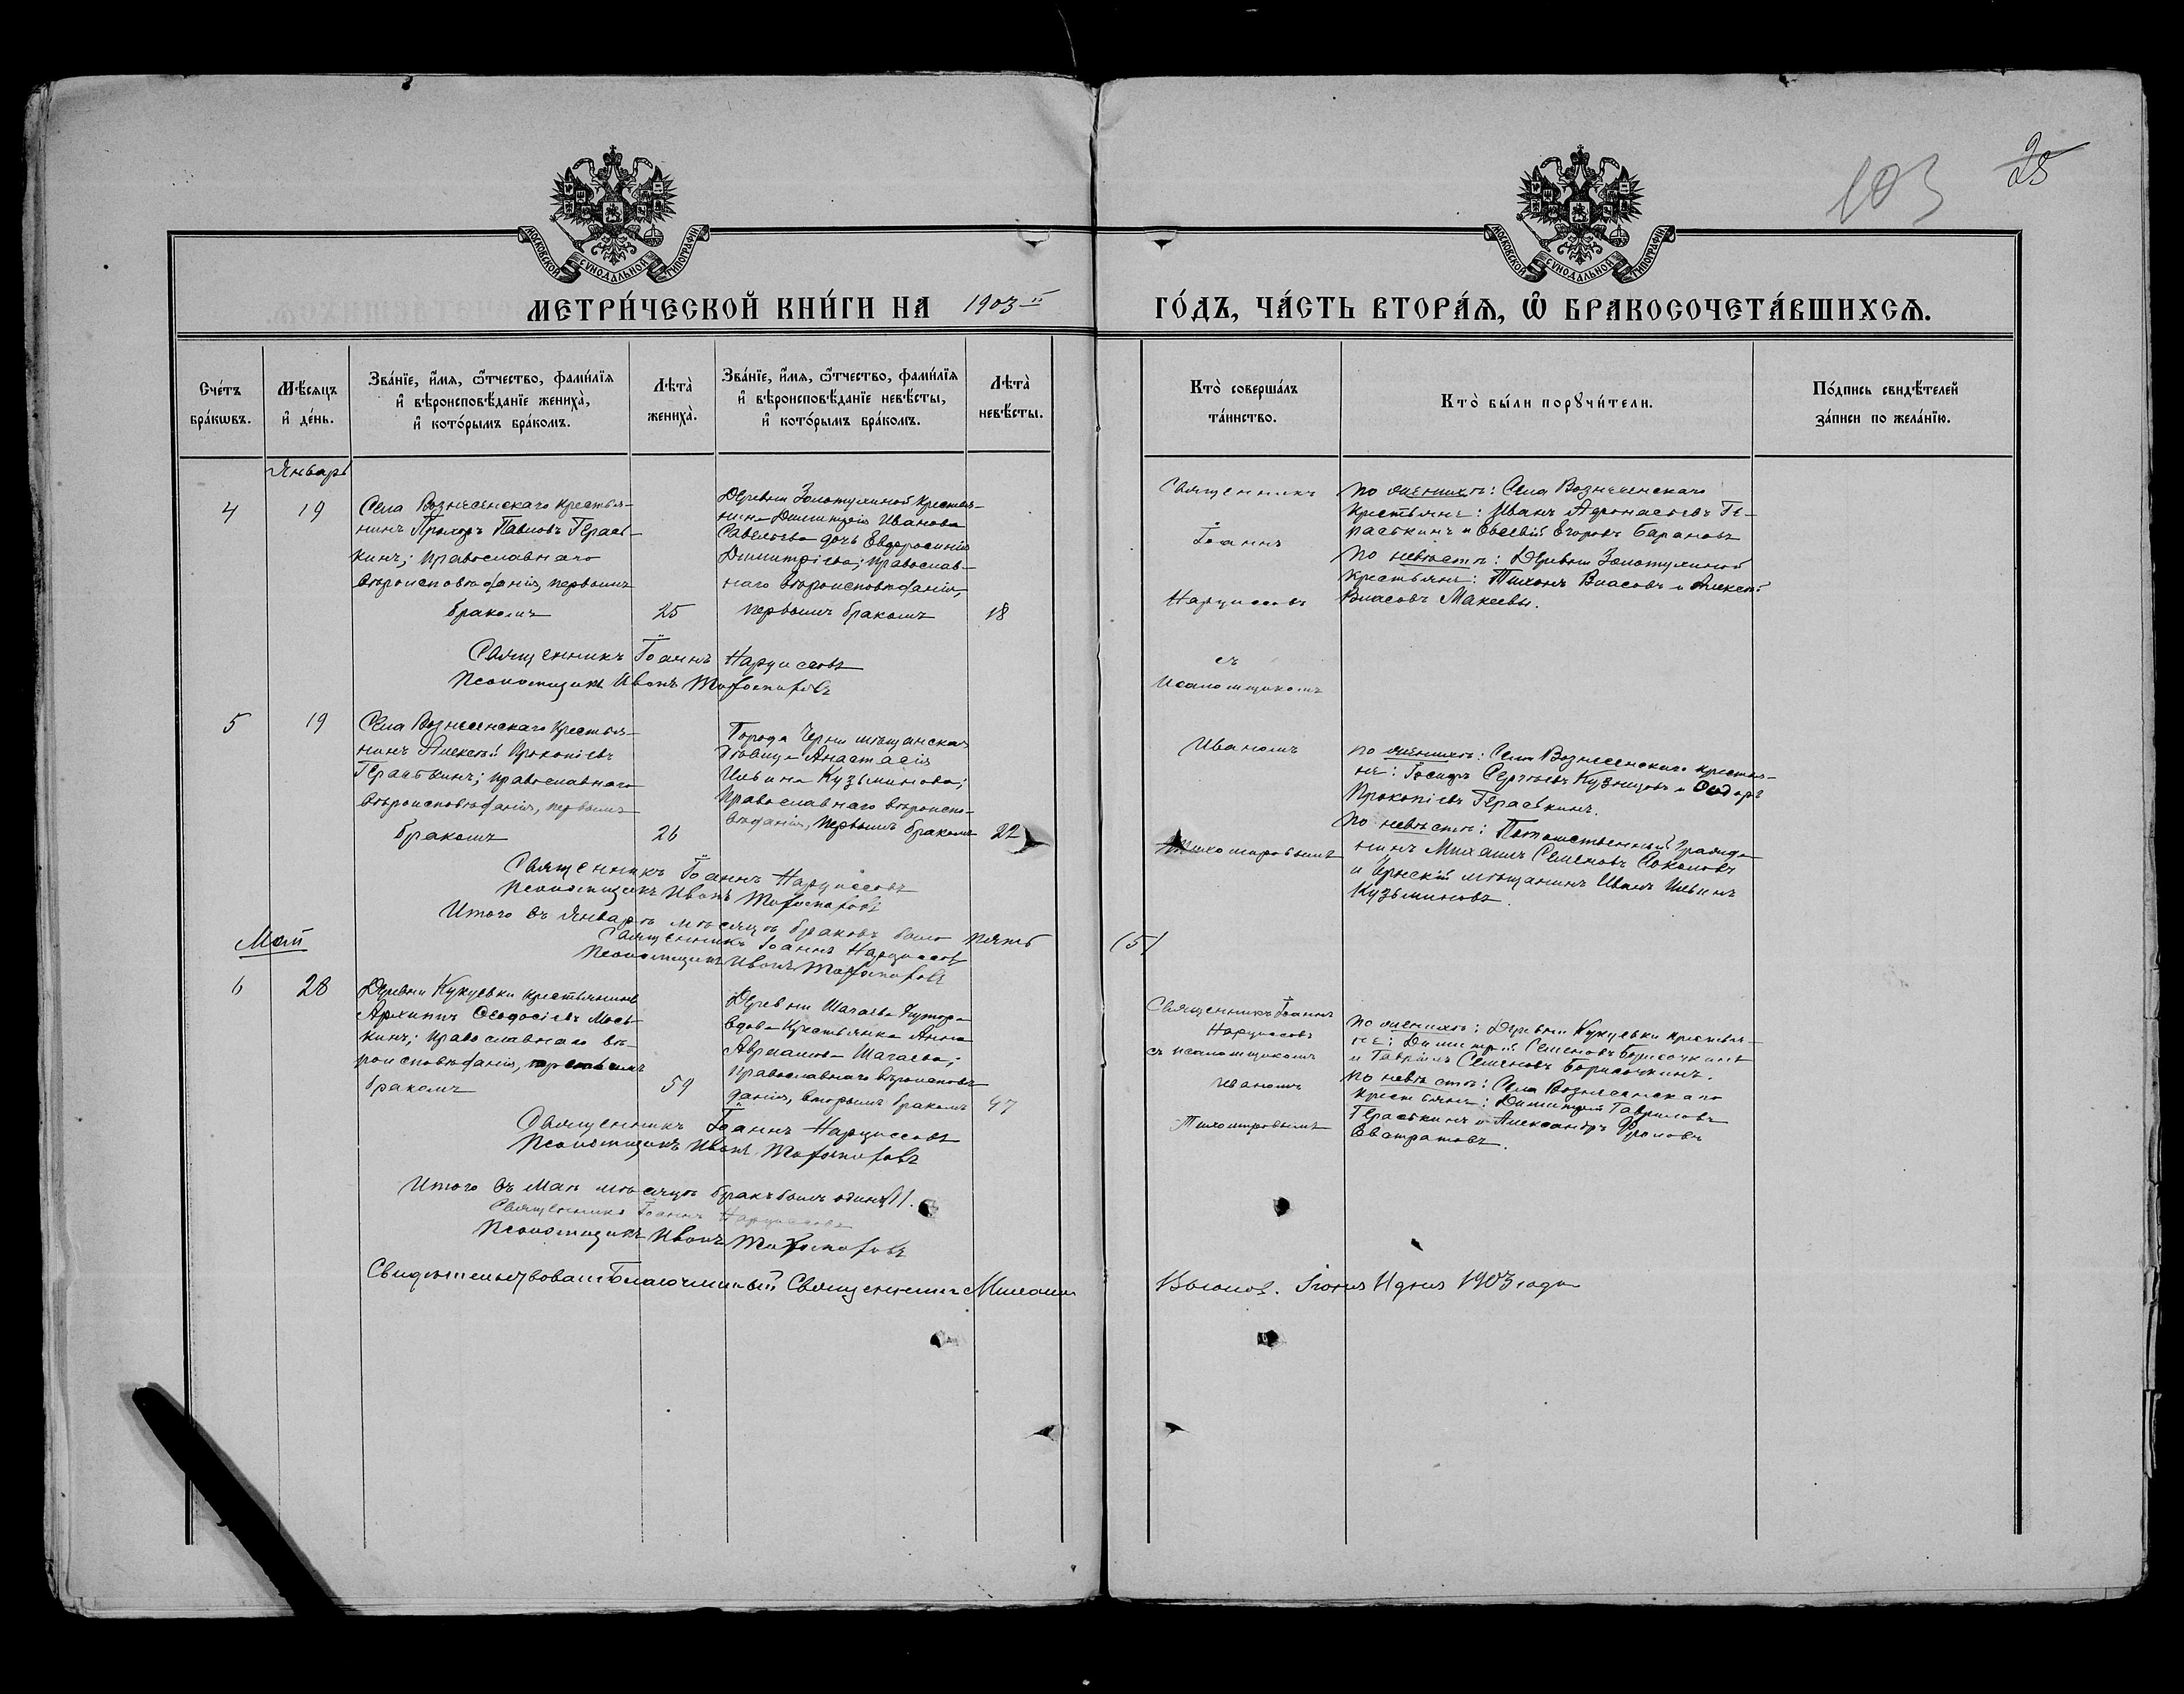 103
25
МОСКОВСКОЙ СѴНОДАЛЬНОЙ ТИПОГРАФІИ
МОСКОВСКОЙ СѴНОДАЛЬНОЙ ТИПОГРАФІИ
МЕТРИ́ЧЕСКОЙ КНИ́ГИ НА 1903 ГО́ДЪ, ЧА́СТЬ ВТОРА́Я, Ѡ҆ БРАКОСОЧЕТА́ВШИХСѦ.
Сче́тъ
бра́кѡвъ.
Мѣ́сяцъ
и҆ де́нь.
Зва́нїе, и҆́мѧ, ѻ҆́тчество, фами́лїѧ
и҆ вѣроисповѣ́данїе жениха̀,
и҆ кото́рымъ бра́комъ.
Лѣта̀
жениха̀.
Зва́нїе, и҆́мѧ, ѻ҆́тчество, фами́лїѧ
и҆ вѣроисповѣ́данїе невѣ́сты,
и҆ кото́рымъ бра́комъ.
Лѣта̀
невѣ́сты.
Кто̀ соверша́лъ
та́инство.
Кто̀ бы́ли порꙋчи́тели.
По́дпись свидѣ́телей
за́писи по жела́нїю.
Январь
4
19
Села Вознесенскаго крестья-
нинъ Прохоръ Павловъ Герась-
кинъ; православнаго
вѣроисповѣданія, первымъ
бракомъ
25
Деревни Золотухиной крестья-
нина Димитрія Иванова
Савельева дочь Евдросинія
Димитріева; православ-
наго вѣроисповѣданія,
первымъ бракомъ
18
Священникъ
Іоаннъ
Нарциссовъ
съ
псаломщикомъ
Иваномъ
Тихомировымъ
по женихѣ: Села Вознесенскаго
крестьяне: Иванъ Афонасьевъ Ге-
раськинъ и Евсевій Егоровъ Барановъ
по невѣстѣ: Деревни Золотухиной
крестьяне: Тихонъ Власовъ и Алексѣй
Власовъ Макеевы.
Священникъ Іоаннъ Нарциссовъ
Псаломщикъ Иванъ Тихомировъ
5
19
Села Вознесенскаго крестья-
нинъ Алексѣй Прокопіевъ
Гераськинъ; православнаго
вѣроисповѣданія, первымъ
бракомъ
26
Города Черни мѣщанская
дѣвица Анастасія
Ильина Кузьминова;
православнаго вѣроиспо-
вѣданія, первымъ бракомъ
22
по женихѣ: Села Вознесенскаго крестья-
не: Іосифъ Сергѣевъ Кузнецовъ и Ѳедоръ
Прокопіевъ Гераськинъ.
по невѣстѣ: Потомственный гражда-
нинъ Михаилъ Семеновъ Соколовъ
и Чернскій мѣщанинъ Иванъ Ильинъ
Кузьминовъ.
Священникъ Іоаннъ Нарциссовъ
Псаломщикъ Иванъ Тихомировъ
Итого въ Январѣ мѣсяцѣ браковъ было пять (5)
Священникъ Іоаннъ Нарциссовъ
Псаломщикъ Иванъ Тихомировъ
Май
6
28
Деревни Кукуевки крестьянинъ
Архипъ Ѳеодосіевъ Мось-
кинъ; православнаго вѣ-
роисповѣданія, третьимъ
бракомъ
59
Деревни Шагаева Хутора
вдова крестьянка Анна
Авраамова Шагаева;
православнаго вѣроисповѣ-
данія, вторымъ бракомъ
47
Священникъ Іоаннъ
Нарциссовъ
съ псаломщикомъ
Иваномъ
Тихомировымъ
по женихѣ: Деревни Кукуевки крестья-
не: Димитрій Семеновъ Борисочкинъ
и Гавріилъ Семеновъ Борисочкинъ.
по невѣстѣ: Села Вознесенскаго
крестьяне: Димитрій Гавриловъ
Гераськинъ и Александръ Фроловъ
Евстратовъ.
Священникъ Іоаннъ Нарциссовъ
Псаломщикъ Иванъ Тихомировъ
Итого въ Маѣ мѣсяцѣ бракъ былъ одинъ (1).
Священникъ Іоаннъ Нарциссовъ
Псаломщикъ Иванъ Тихомировъ
Свидѣтельствовалъ Благочинный Священникъ Михаилъ Іюня 11 дня 1903 года